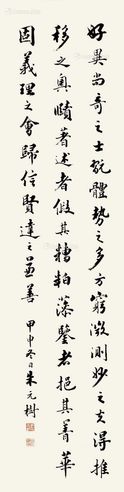 好異尚奇之士玩體勢之多方窮微測妙之夫得推
移之奧賾著述者假其糟粕藻鑒者挹其菁華
固義理之會歸信賢達之兼善 甲申冬日朱元樹